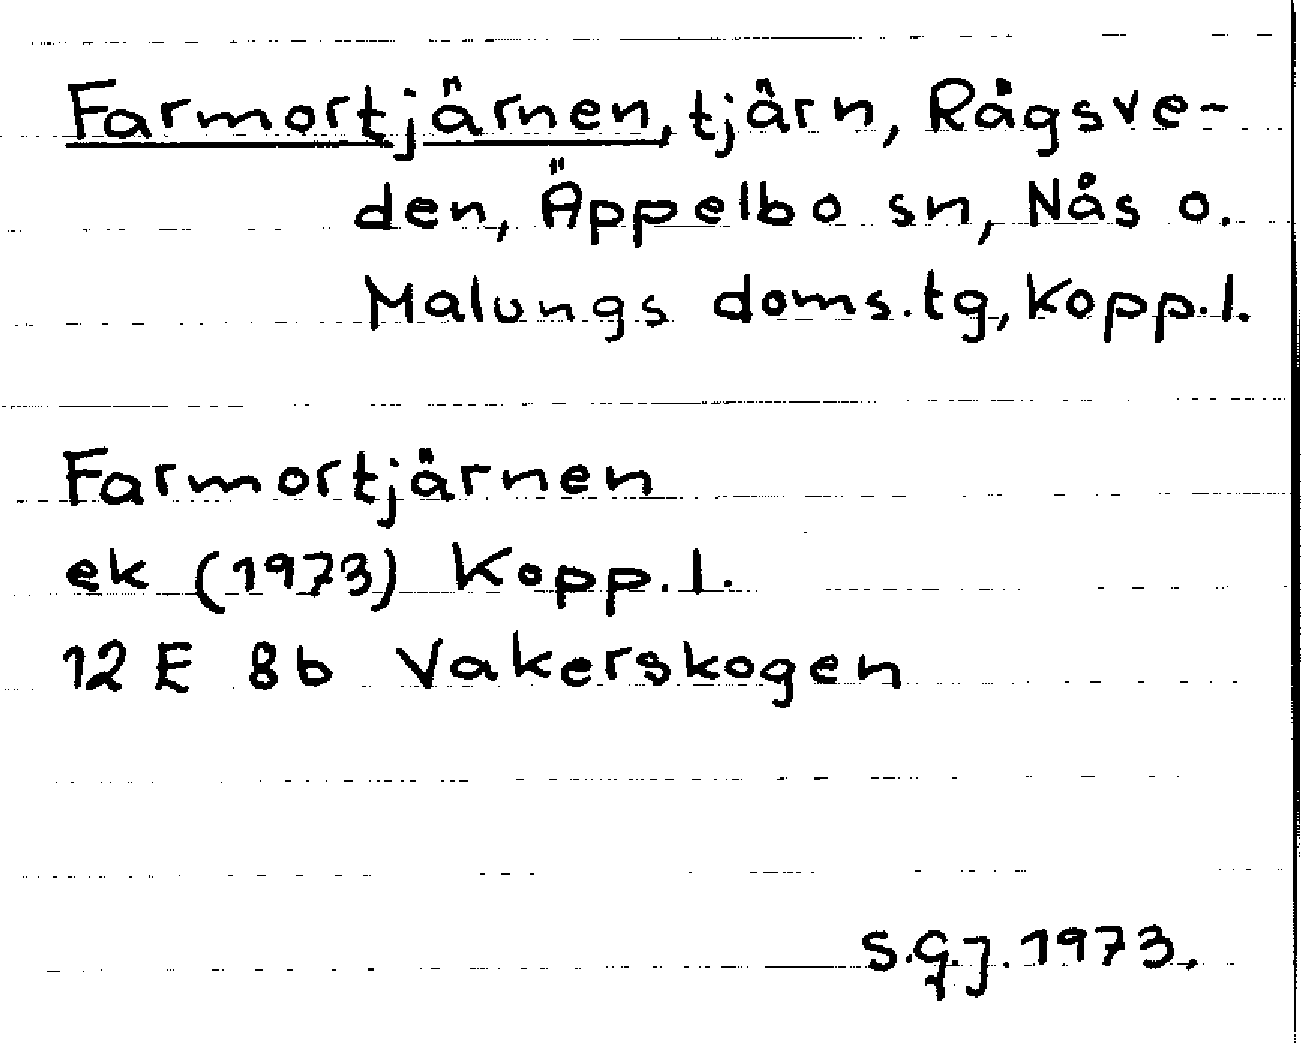 Farmortjärnen, tjärn, Rågsve-
den, Äppelbo sn, Nås o.
Malungs doms.tg, Kopp.l.
Farmortjärnen
ek (1973) Kopp.l.
12 E 8b Vakerskogen
S.G.J. 1973.